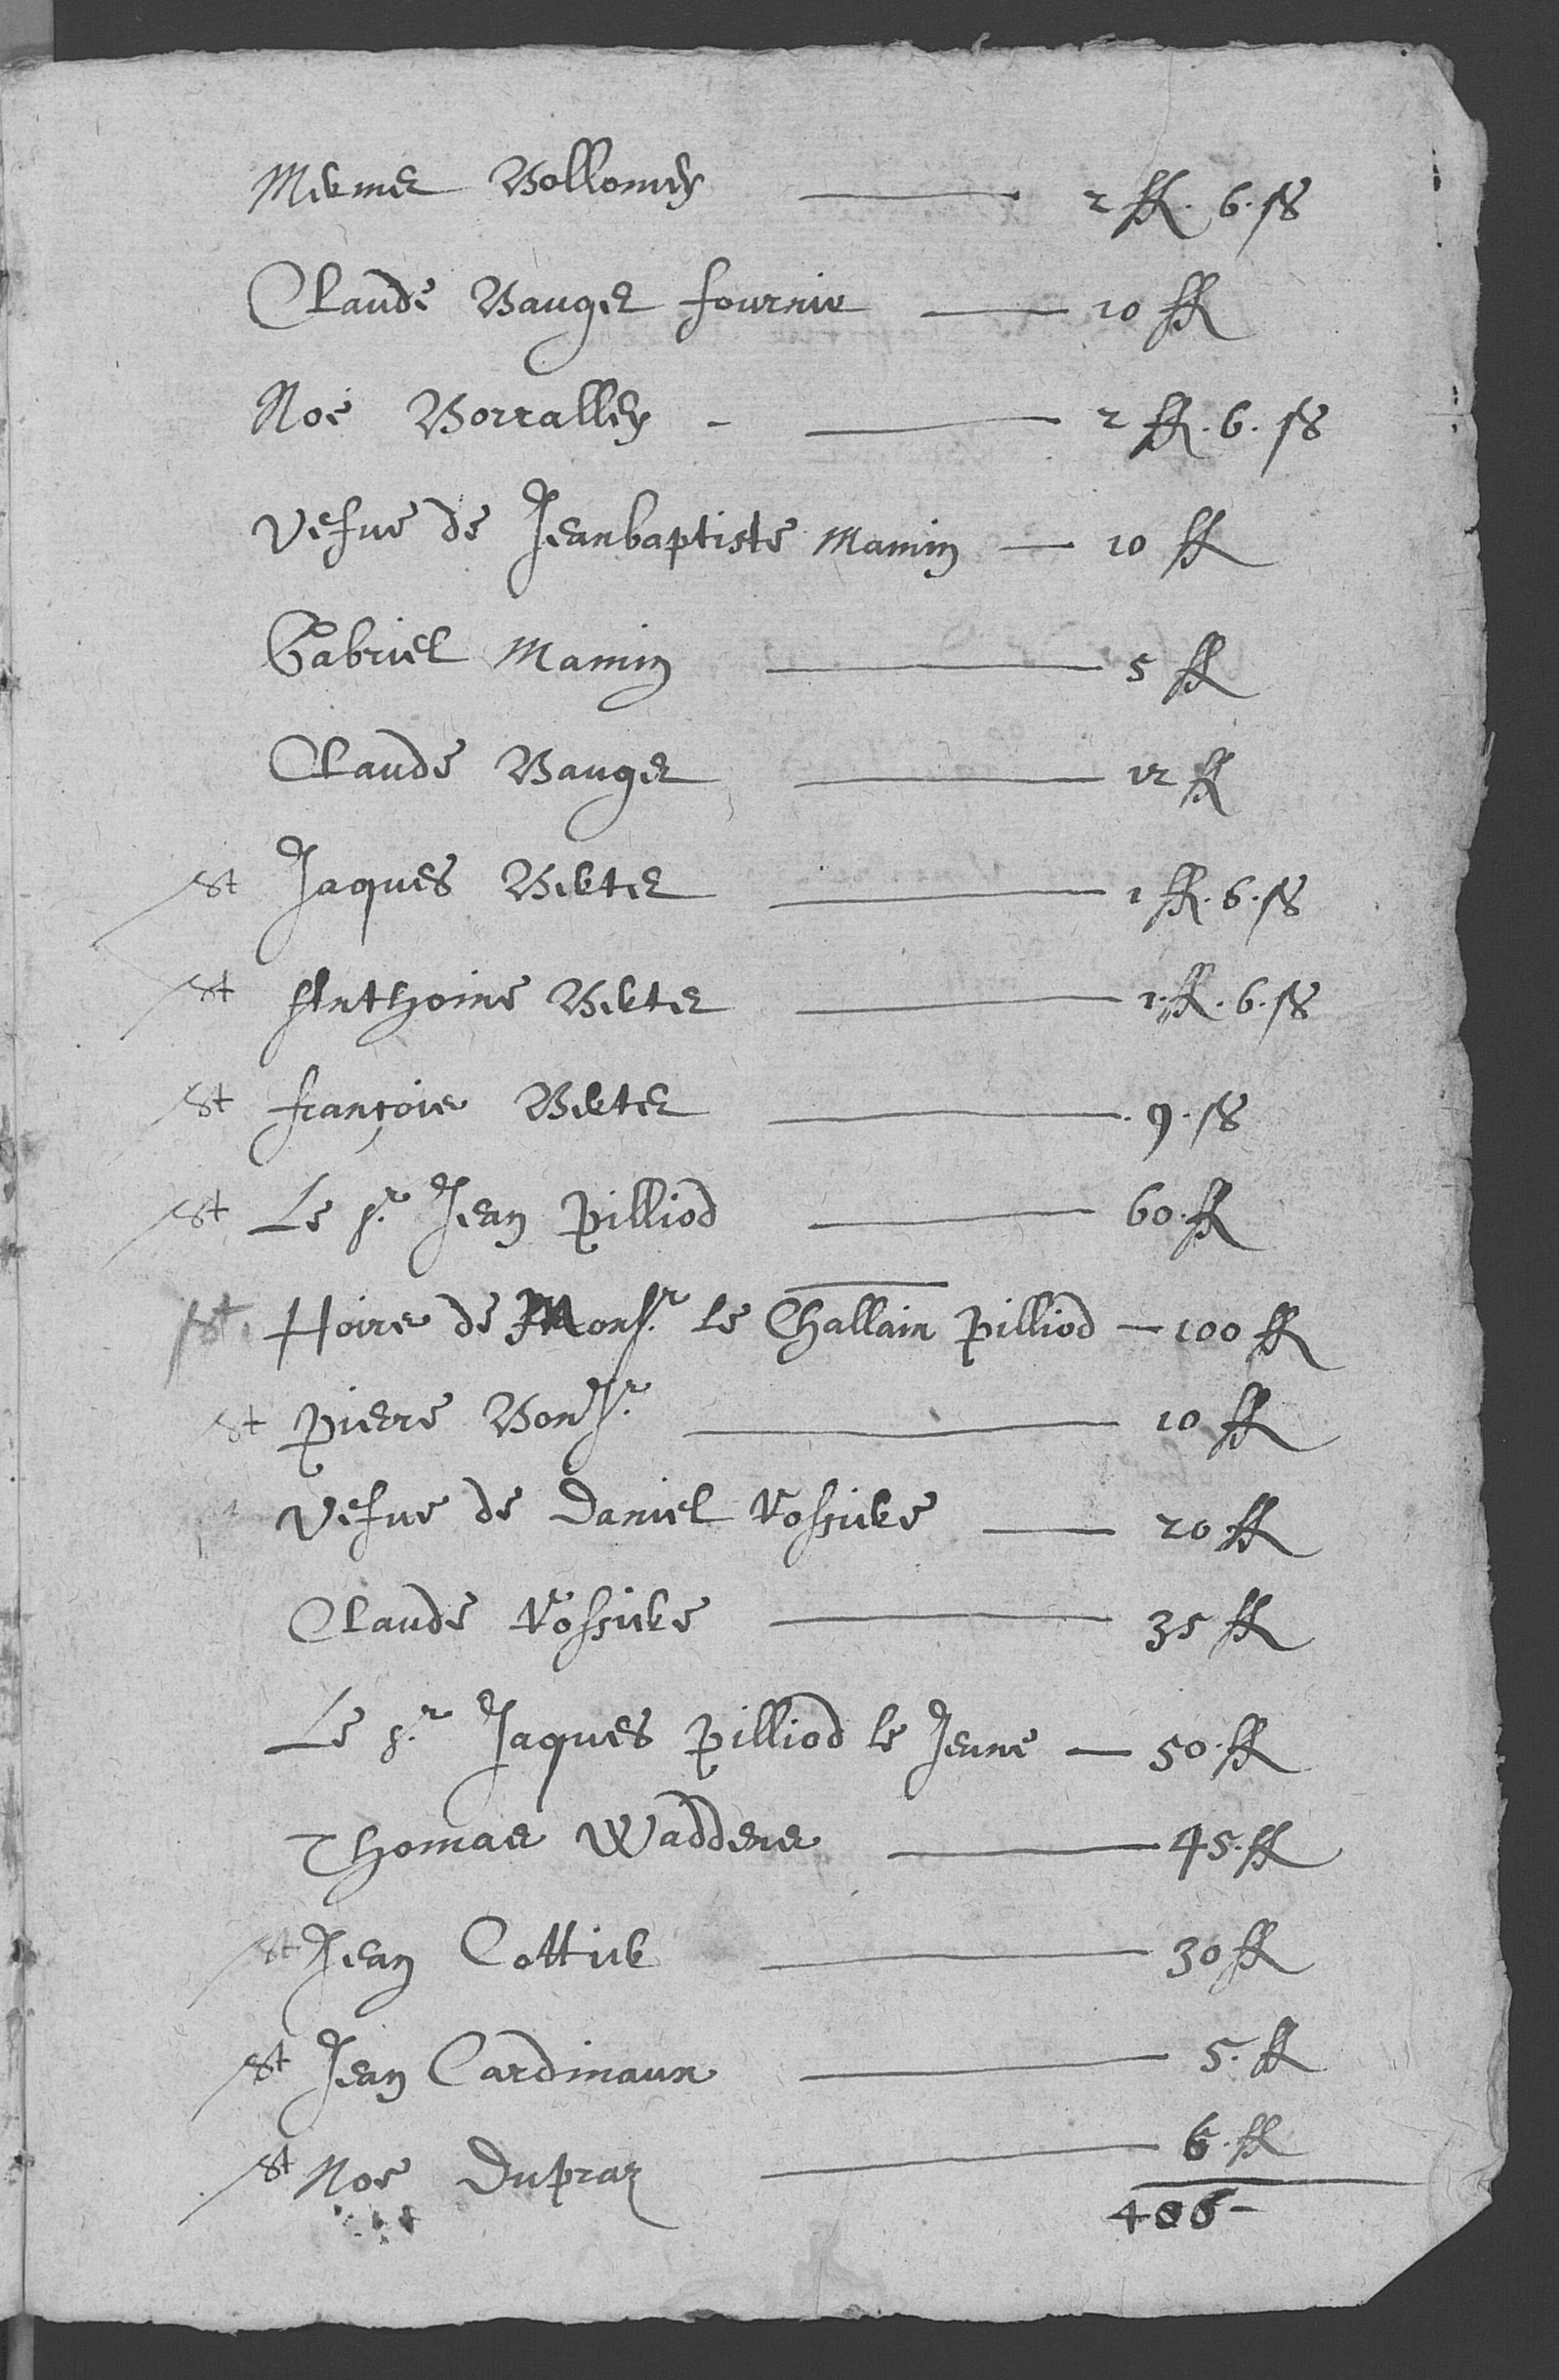 Mermet Vollomey — 2 ff. 6. ss
Claude Bauget fournie — 10 ff
Noe Borralley — 2 ff. 6. ss
Vefue de Jeanbaptiste Mamin — 10 ff
Gabriel Mamin — 5 ff
Claude Bauget — 12 ff
st Jaques Bertet — 1 ff. 6. ss
st Anthoine Bertet — 1. ff. 6. ss
st françois Bertet — 9. ss
st Le sr. Jean pilliod — 60. ff
st. Hoirs de Monsr. le Challain pilliod — 100 ff
st pierre — 10 ff
Vefue de Daniel Rossier — 20 ff
Claude Rossier — 35 ff
Le sr. Jaques pilliod le Jeune — 50. ff
Thomas Waddens — 45. ff
st Jean Cottier — 30 ff
st Jean Cardinaux — 5. ff
st Noe Dupraz — 6. ff
406 -